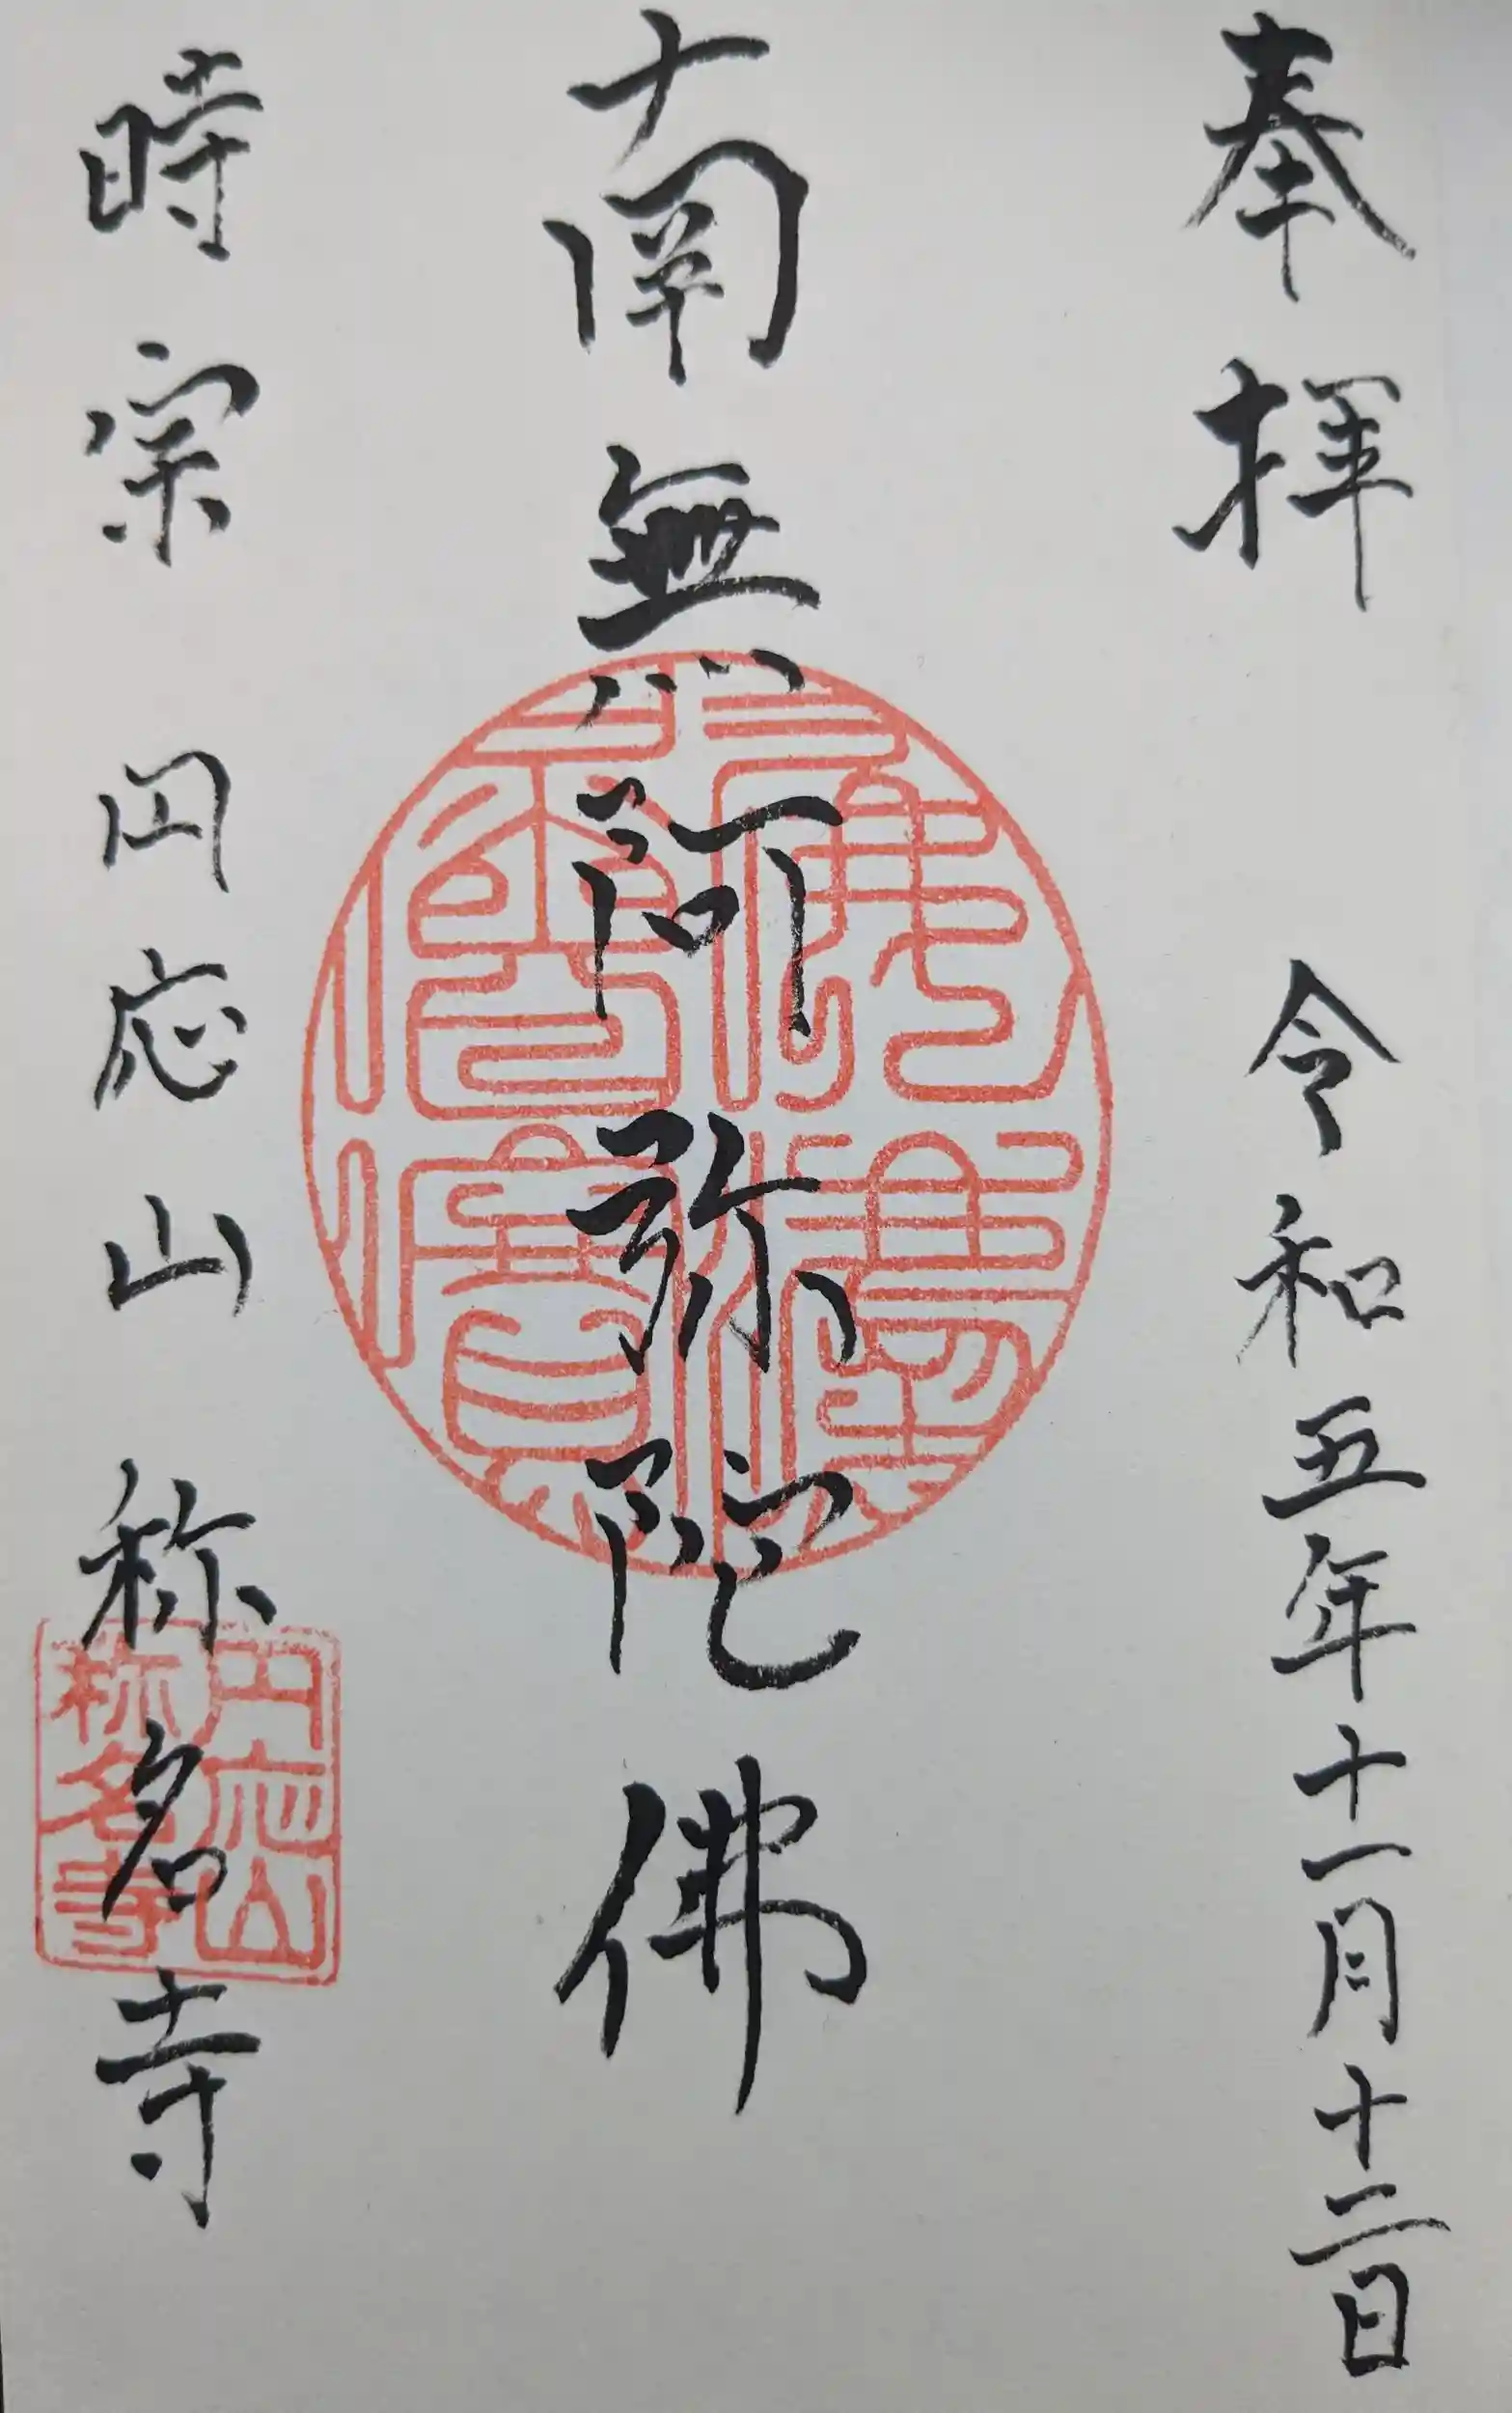 奉拝 令和五年十一月十二日
南無阿弥陀佛
佛法僧寶
時宗 円応山 称名寺
円応山
称名寺